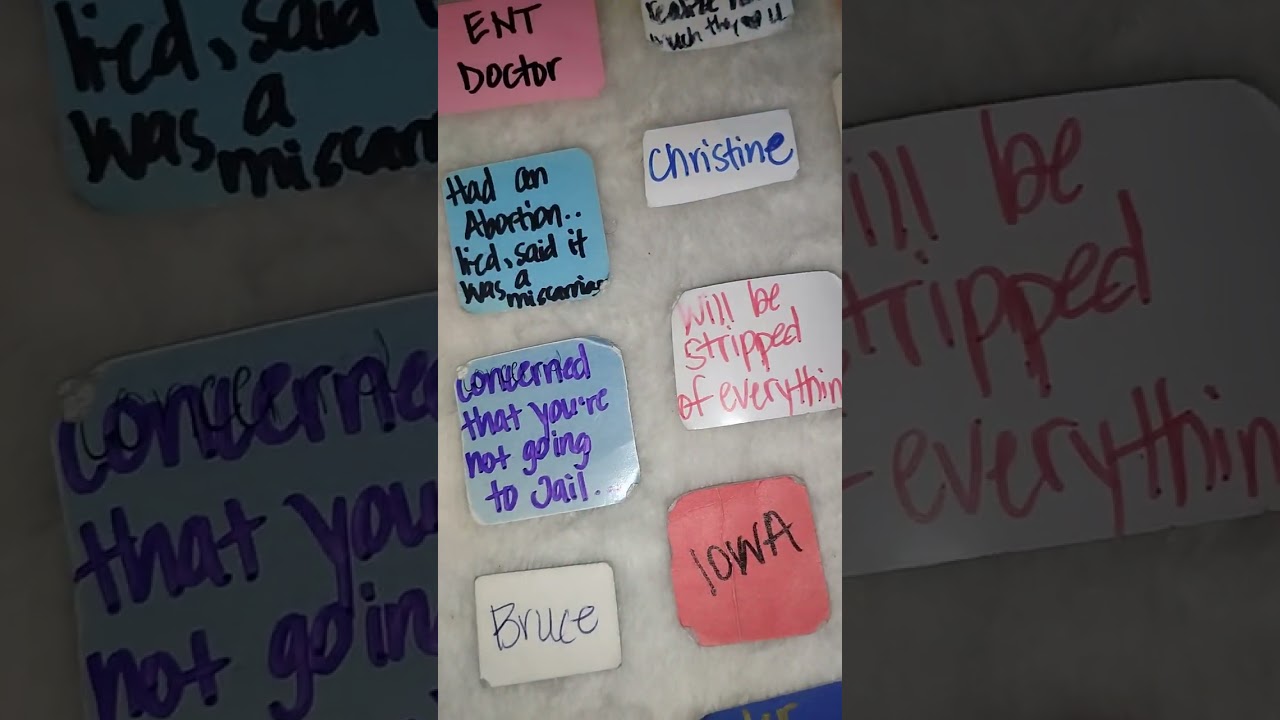 ENT
Doctor
much they ♥ u
Christine
Had an
Abortion..
lied, said it
was a
miscarriage
Will be
stripped
of everythin
concerned
that you're
not going
to Jail.
IOWA
Bruce
lied, said i
was a
miscarr
concerned
that you
not goin
ill be
tripped
everythin